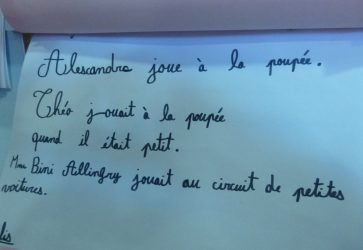 Alescandra joue à la poupée.
Théo jouait à la poupée
quand il était petit.
Mme Bini Aillingry jouait au circuit de petites
voitures.
lis